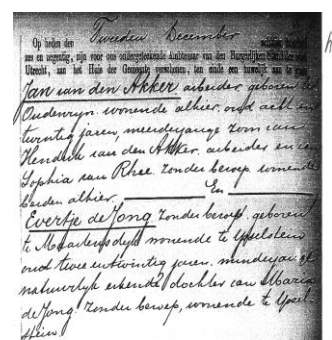 Tweeden December
Op heden den
zes en negentig, zijn voor ons ondergeteekende Ambtenaar van den Burgerlijken Stand der
Utrecht, aan het Huis der Gemeente verschenen, ten einde een huwelijk aan te gaan
Jan van den Akker, arbeider, geboren te
Oudenryn wonende alhier, oud acht en
twintig jaren, meerderjarige zoon van
Hendrik van den Akker, arbeider en van
Sophia van Rhee zonder beroep, wonende
beiden alhier. En
Evertje de Jong zonder beroep, geboren
te Maartensdyk wonende te Ysselstein
oud twee entwintig jaren, minderjarige
natuurlyk erkende dochter van Maria
de Jong zonder beroep, wonende te Yssel
stein